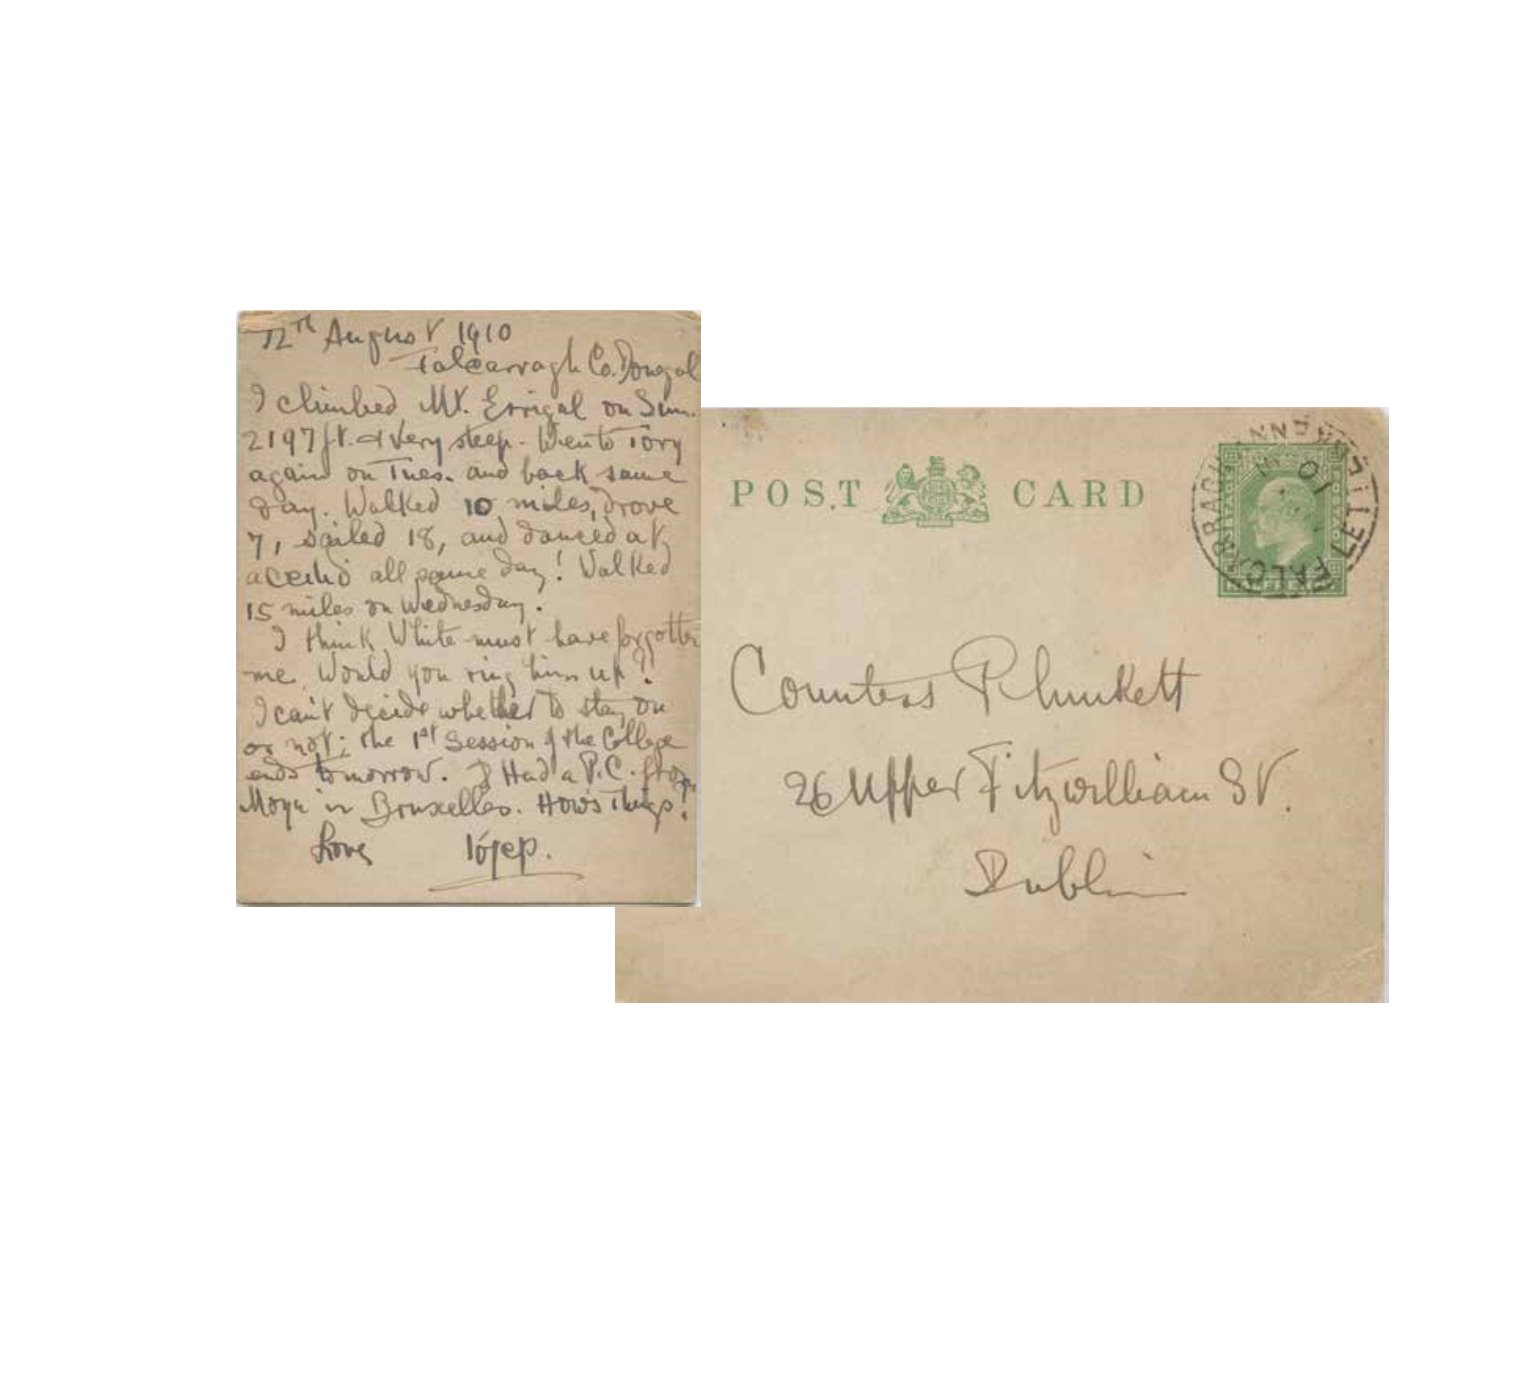 12th August 1910
Falcarragh Co. Donegal
I climbed Mt. Errigal on Sun.
2197 ft. & very steep. Went to Tory
again on Tues. and back same
day. Walked 10 miles, drove
7, sailed 18, and danced at
a Ceilid all same day! Walked
15 miles on Wednesday.
I think White must have forgotten
me. Would you ring him up?
I can't decide whether to stay on
or not; the 1st Session of the College
ends tomorrow. I Had a P.C. from
Moya in Bruxelles. How's Things!
Love Iósep.
POST CARD
FALCARRAGH LETTERKENNY
10
Countess Plunkett
26 Upper Fitzwilliam St.
Dublin